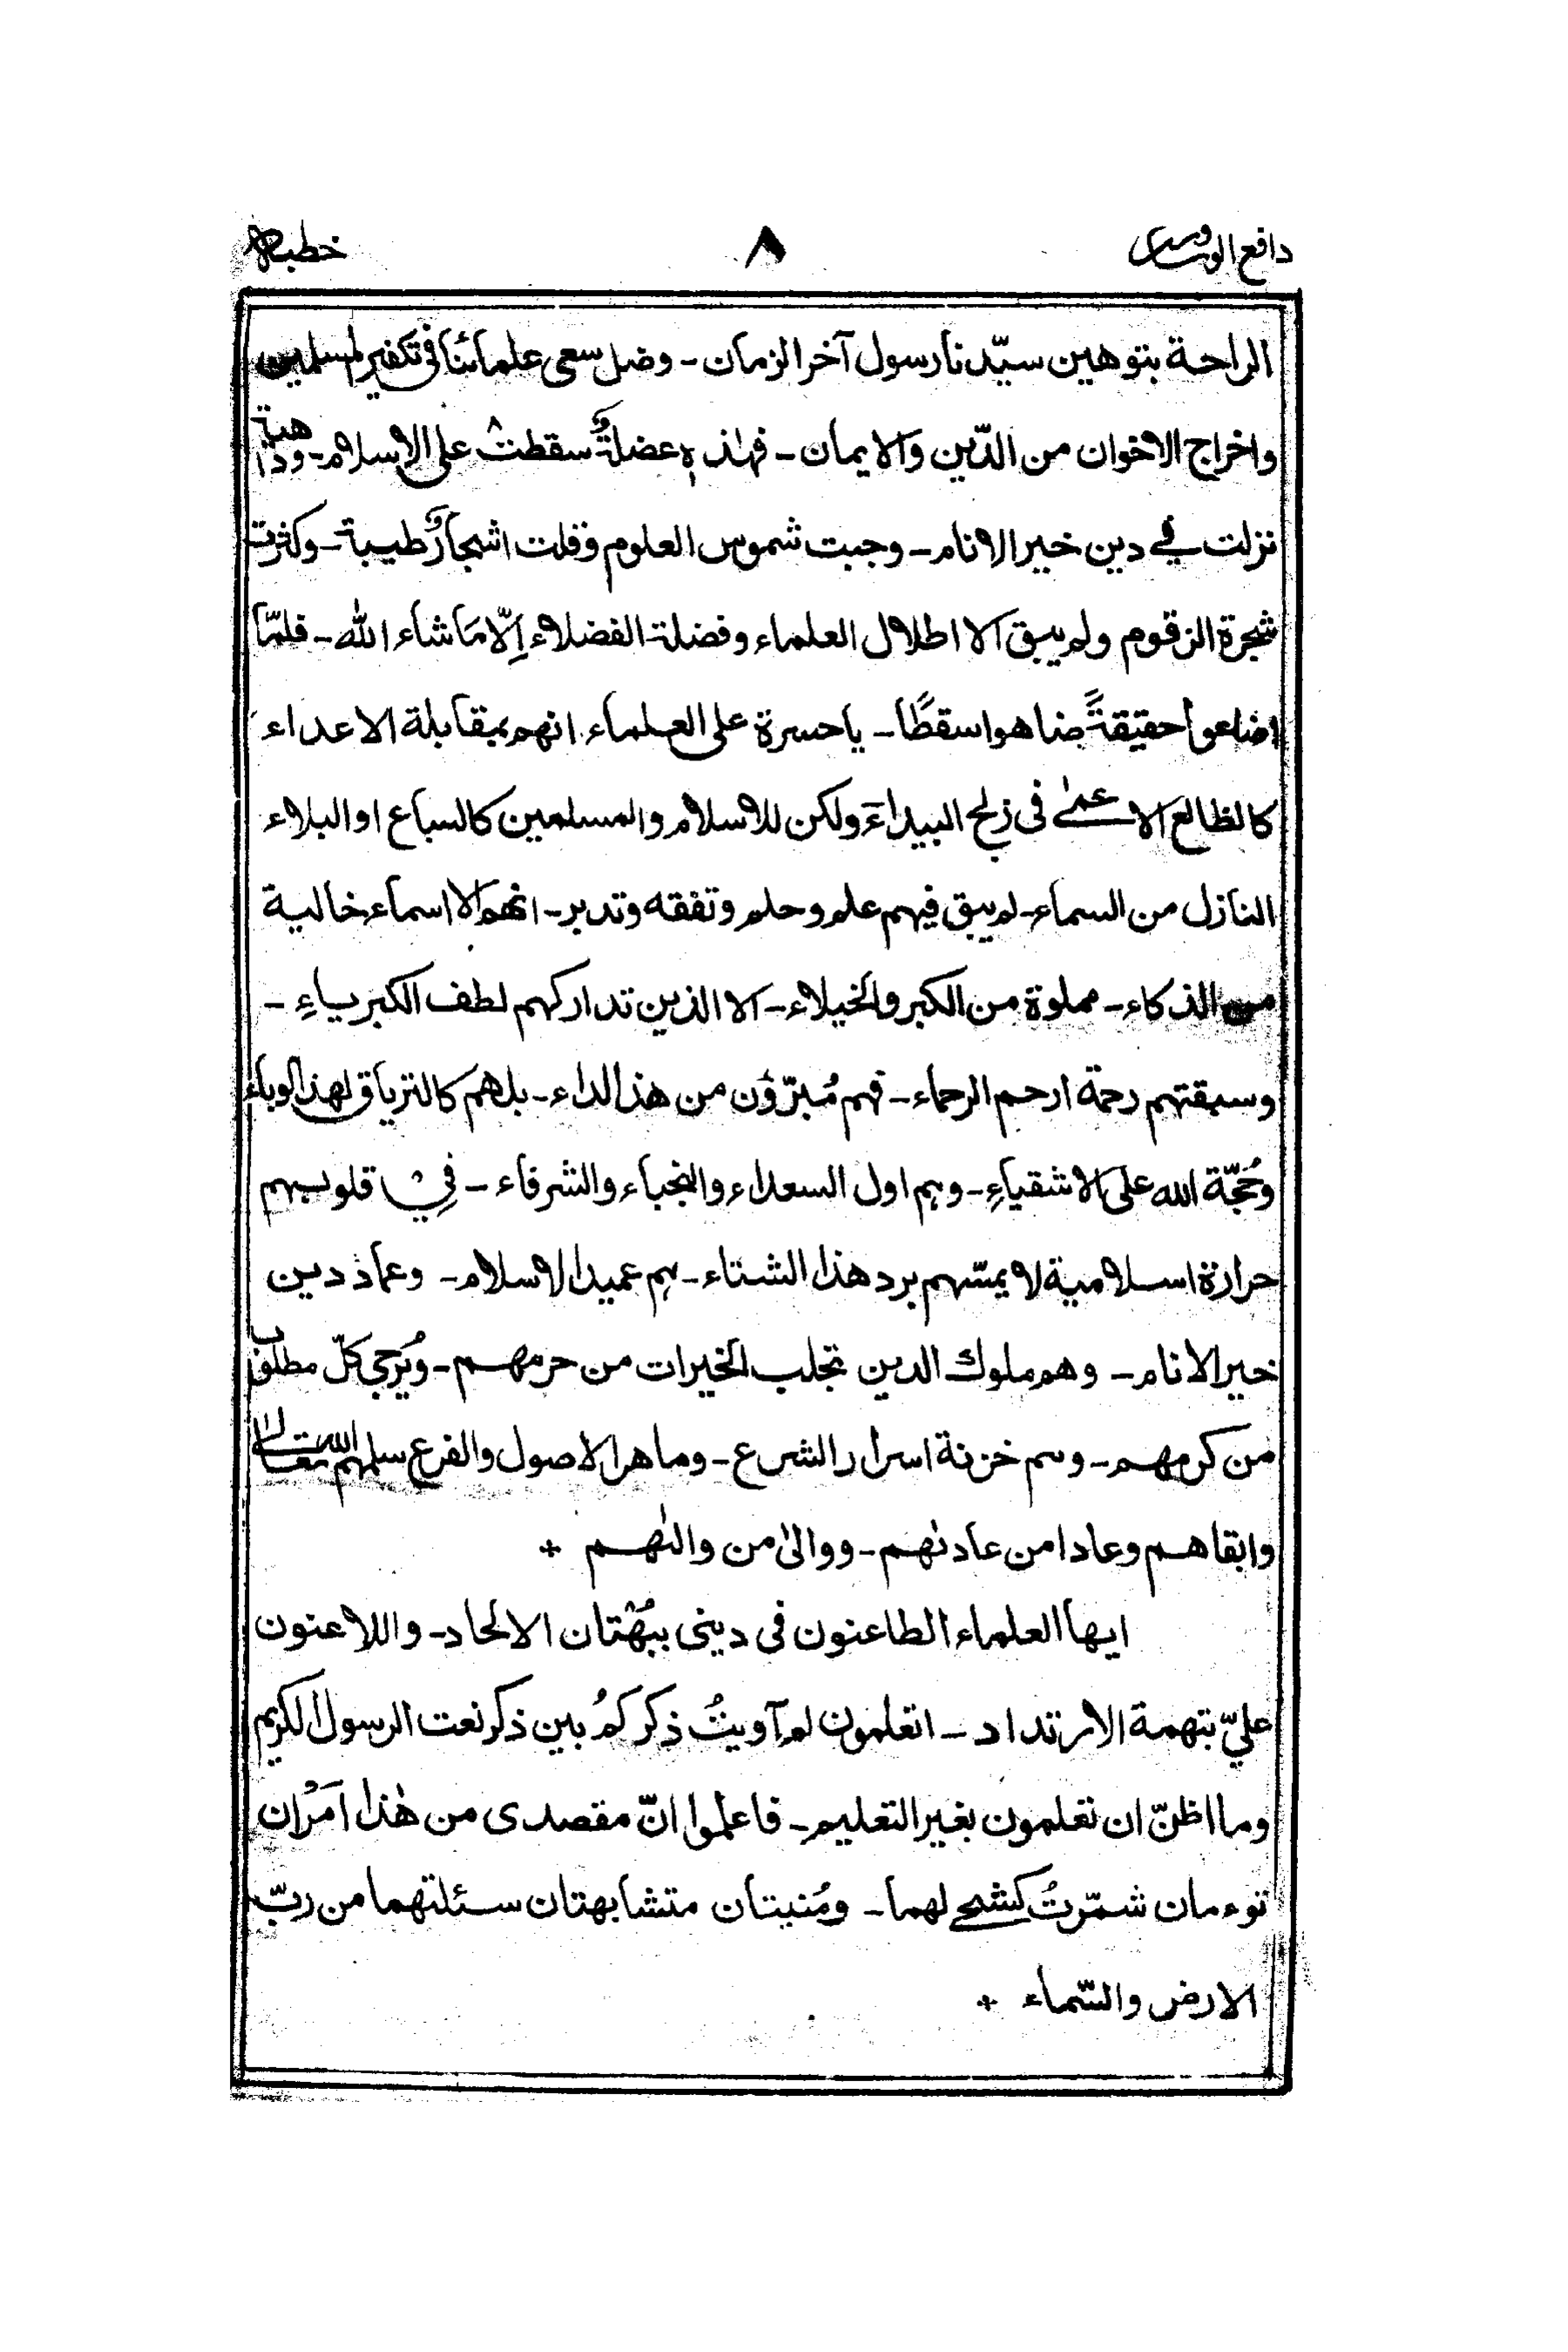 دافع الوساوس ٨ خطبه
الراحة بتوهين سيّدنا رسول آخر الزمان - وضل سعى علمائنا فى تكفير المسلمين
واخراج الاخوان من الدّين والايمان - فهٰذه عضلةٌ سقطت على الاسلام - وداهية
نزلت في دين خير الانام - وجبت شموس العلوم وقلت اشجارٌ طيبة - وكثرت
شجرة الزقوم ولم يبق الا اطلال العلماء وفضلة الفضلاء اِلّا مَا شاء الله - فلمّا
اضاعوا حقيقةً ضاهوا سقطًا - يا حسرة على العلماء انهم بمقابلة الاعداء
كالظالع الاعمىٰ فى زلح البيداء ولكن للاسلام والمسلمين كالسباع او البلاء
النازل من السماء - لم يبق فيهم علم وحلم وتفقه وتدبر - انهم الا اسماء خالية
من الذكاء - مملوة من الكبر والخيلاء - الا الذين تداركهم لطف الكبرياءِ -
وسبقتهم رحمة ارحم الرحماء - فهم مُبرّؤن من هذا الداء - بل هم كالترياق لهذا الوباء
وحُجّة الله على الاشقياءِ - وهم اول السعداء والنجباء والشرفاء - فِي قلوبهم
حرارة اسلامية لا يمسّهم برد هذا الشتاء - هم عميد الاسلام - وعماد دين
خير الانام - وهم ملوك الدين تجلب الخيرات من حرمهم - ويُرجى كلّ مطلوب
من كرمهم - وهم خزنة اسرار الشرع - وماهر الاصول والفرع سلمهم الله تعالىٰ
وابقاهم وعادا من عادٮٰهم - ووالىٰ من والٮٰهم +
ايها العلماء الطاعنون فى دينى ببُهْتان الالحاد - واللاعنون
عليّ بتهمة الارتداد - اتعلمون لم آويتُ ذكركمُ بين ذكر نعت الرسول الكريم
وما اظنّ ان تعلمون بغير التعليم - فاعلموا انّ مقصدى من هٰذا امْران
توءمان شمّرتُ كشحي لهما - ومُنيتان متشابهتان سئلتهما من ربّ
الارض والسّماء +